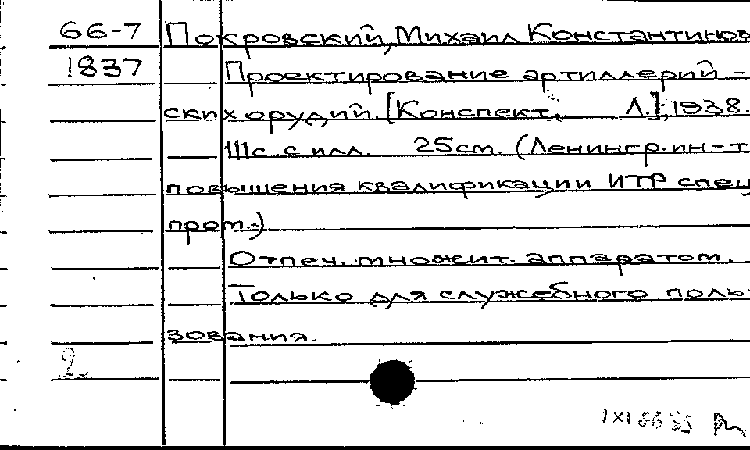 66-7 Покровский, Михаил Константинов
1837 Проектирование артиллерий-
ских орудий. [Конспект. Л.], 1938.
111с. с илл. 25см. (Ленингр. ин-т
повышения квалификации ИТР спец
пром.)
Отпеч. множит. аппаратом.
Только для служебного поль-
зования.
2